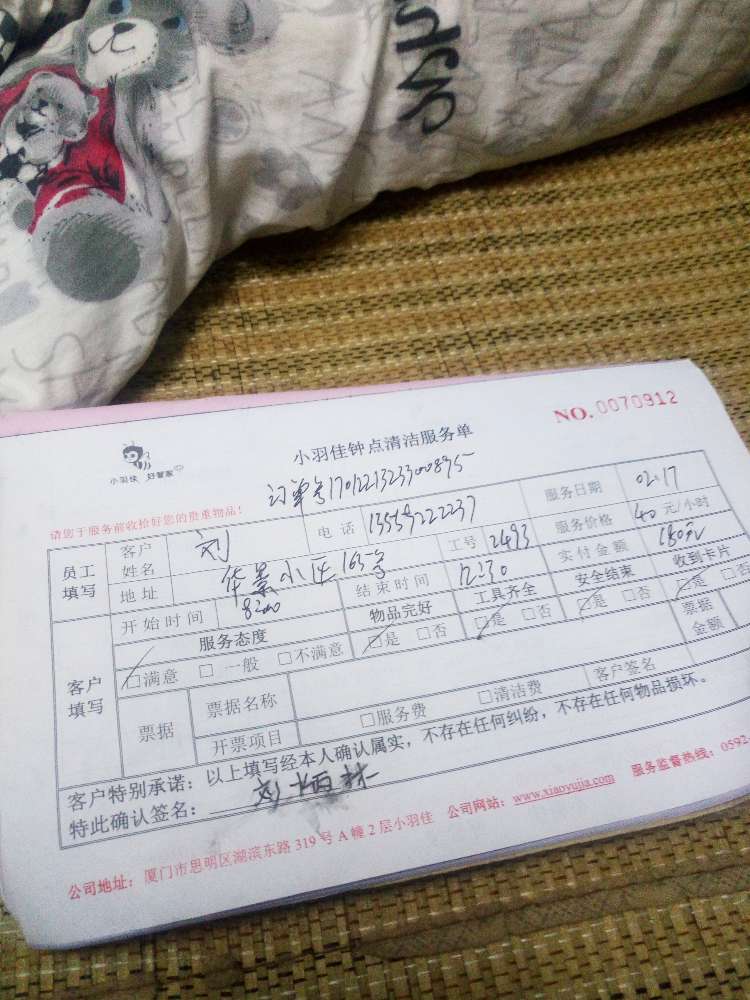 NO.0070912
小羽佳 好管家
小羽佳钟点清洁服务单
请您于服务前收拾好您的贵重物品！
员工填写 客户姓名 刘 电话 服务日期 02.17
地址 华景小区 163号 工号 2493 服务价格 40 元/小时
开始时间 结束时间 12:30 实付金额 180元
客户填写 服务态度 物品完好 工具齐全 安全结束 收到卡片
☑满意 □ 一般 □不满意 ☑是 □否 ☑是 □否 ☑是 □否 ☑是 □否
票据 票据名称 客户签名 票据金额
开票项目 □服务费 □清洁费
客户特别承诺：以上填写经本人确认属实，不存在任何纠纷，不存在任何物品损坏。
特此确认签名：
公司地址：厦门市思明区湖滨东路 319 号 A 幢 2 层小羽佳 公司网站：www.xiaoyujia.com 服务监督热线：0592-